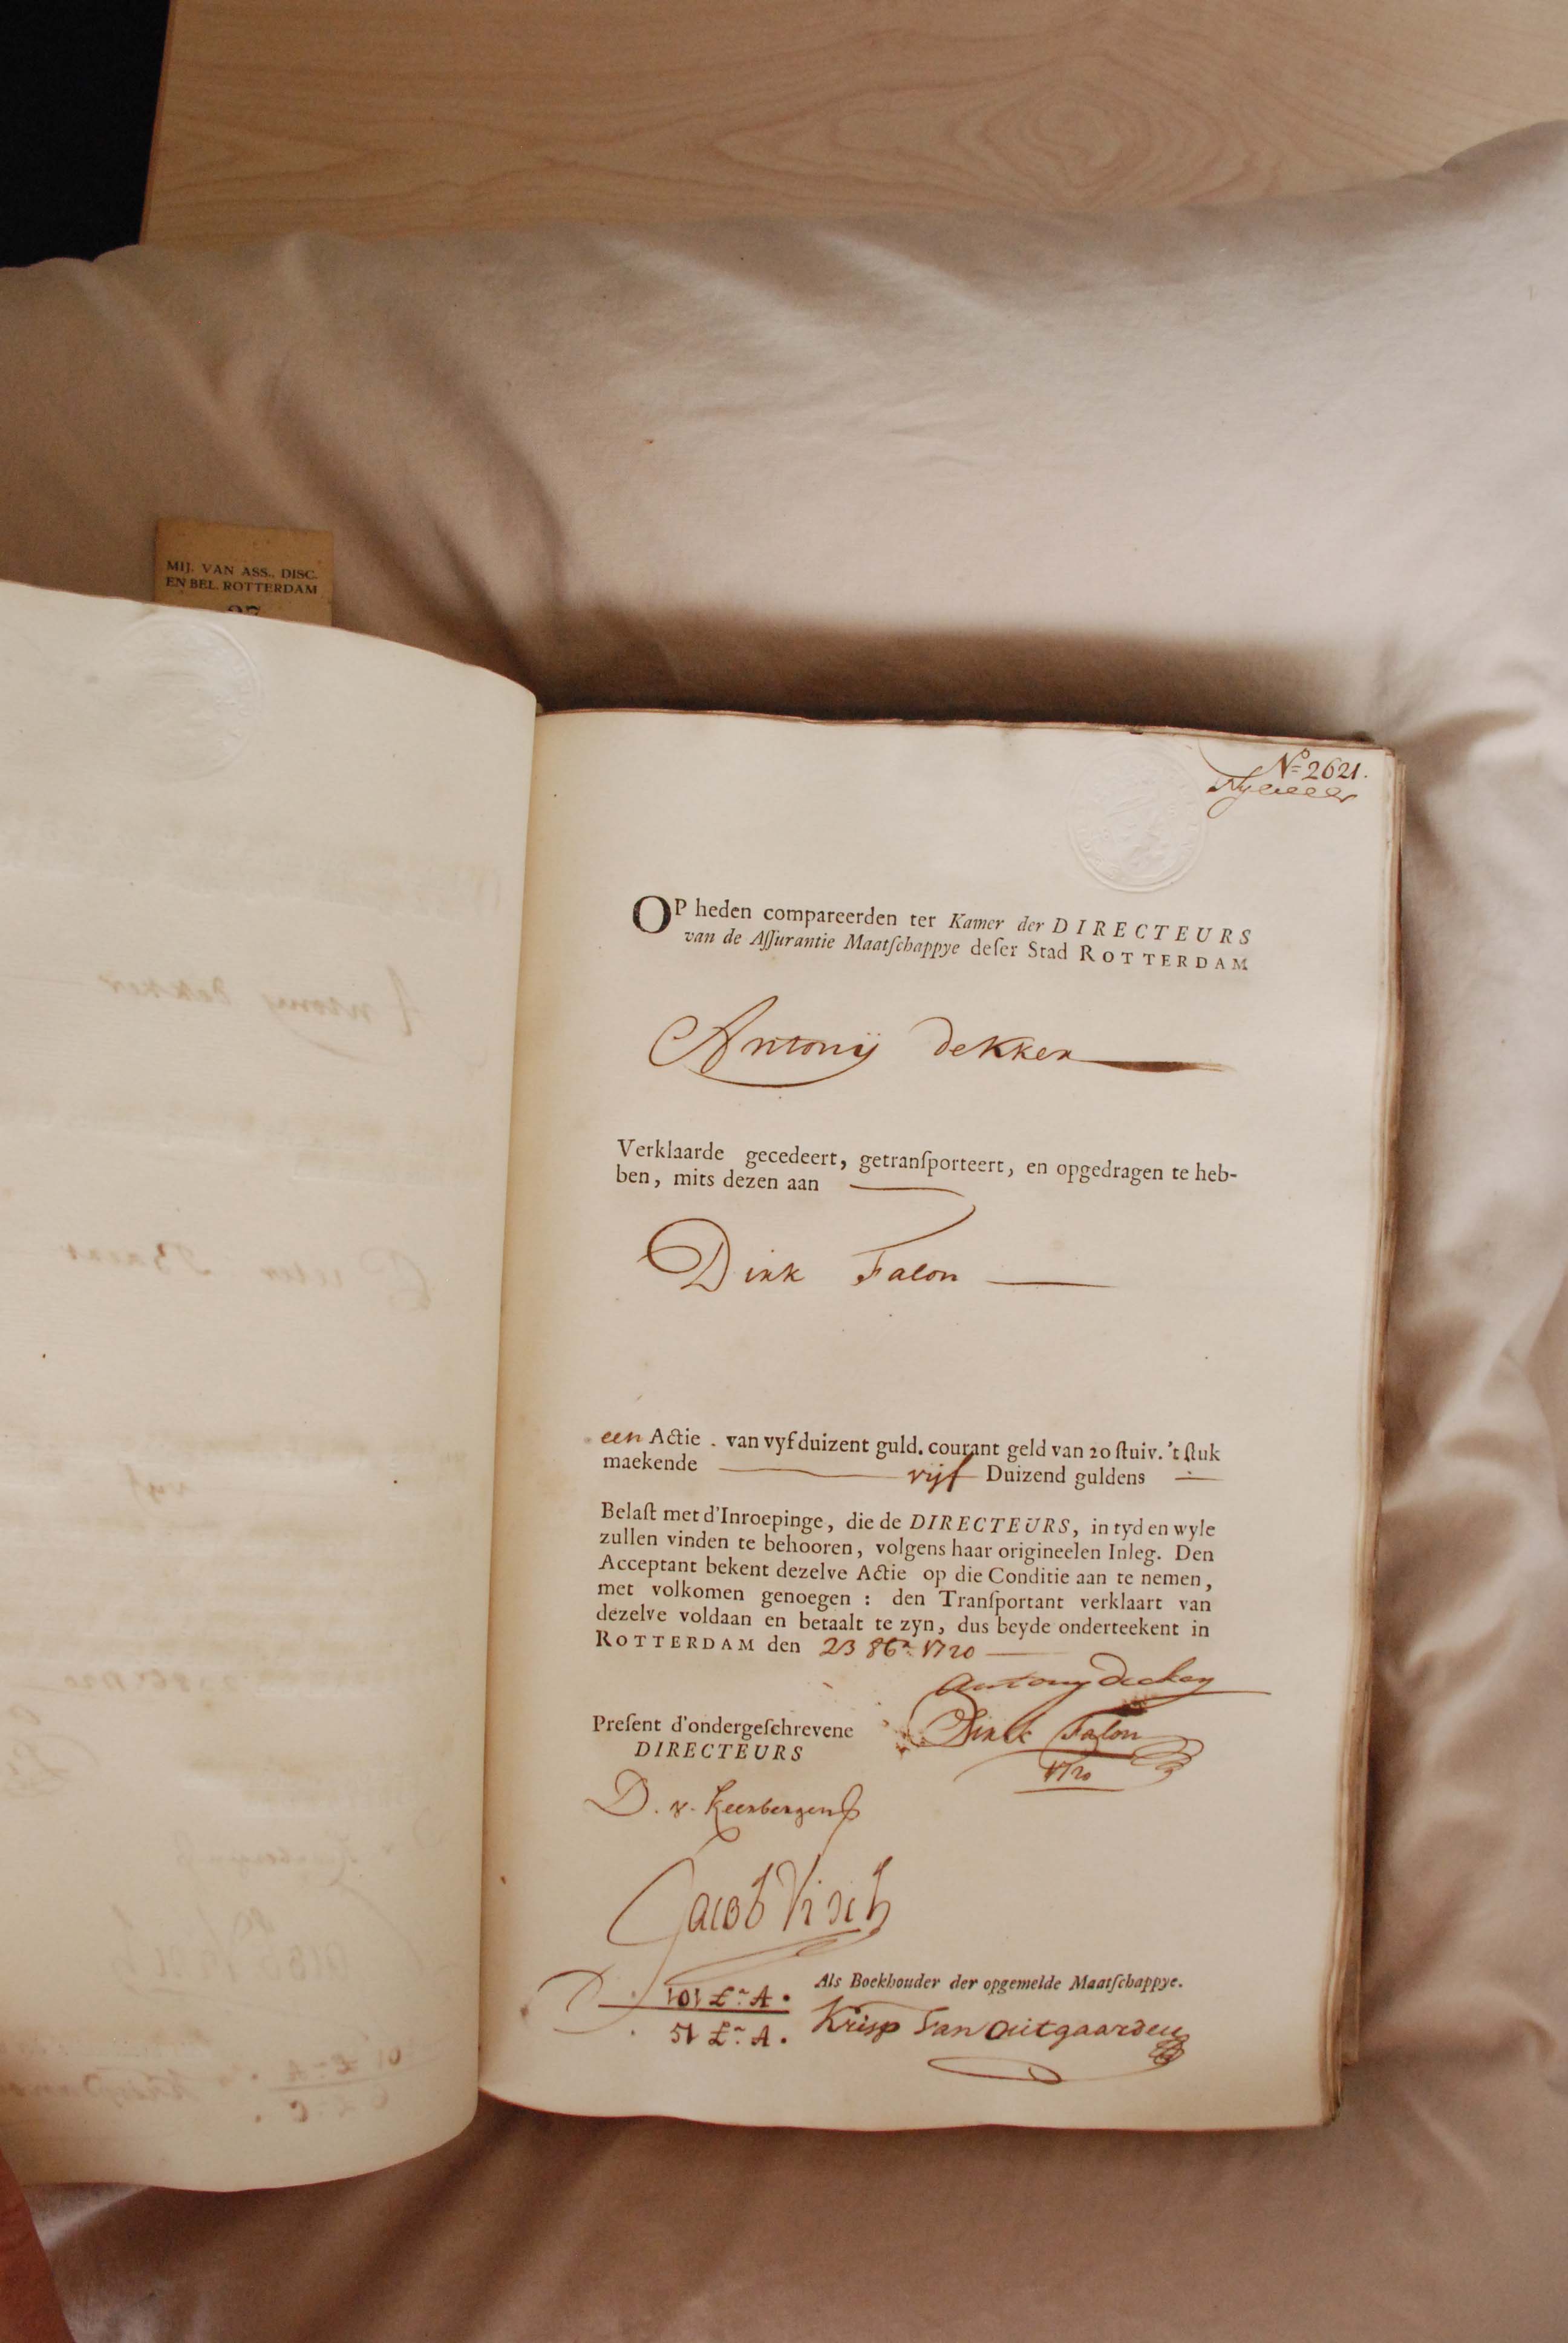 MIJ. VAN ASS., DISC.
EN BEL. ROTTERDAM
27
Nº 2621.
OP heden compareerden ter Kamer der DIRECTEURS
van de Aſſurantie Maatſchappye deſer Stad ROTTERDAM
Antonij Dekker
Verklaarde gecedeert, getranſporteert, en opgedragen te heb-
ben, mits dezen aan
Dirk Falon
een Actie . van vyfduizent guld. courant geld van 20 ſtuiv. 't ſtuk
maekende vijf Duizend guldens
Belaſt met d'Inroepinge, die de DIRECTEURS, in tyd en wyle
zullen vinden te behooren, volgens haar origineelen Inleg. Den
Acceptant bekent dezelve Actie op die Conditie aan te nemen,
met volkomen genoegen : den Tranſportant verklaart van
dezelve voldaan en betaalt te zyn, dus beyde onderteekent in
ROTTERDAM den 23 8br 1720
Antony Decker
Preſent d'ondergeſchrevene
DIRECTEURS
Dirck Falon
1720
D. v. Keerbergen
Jacob Visch
Als Boekhouder der opgemelde Maatſchappye.
101 L:a A.
51 L:a A.
Krisp Van Outgaarden